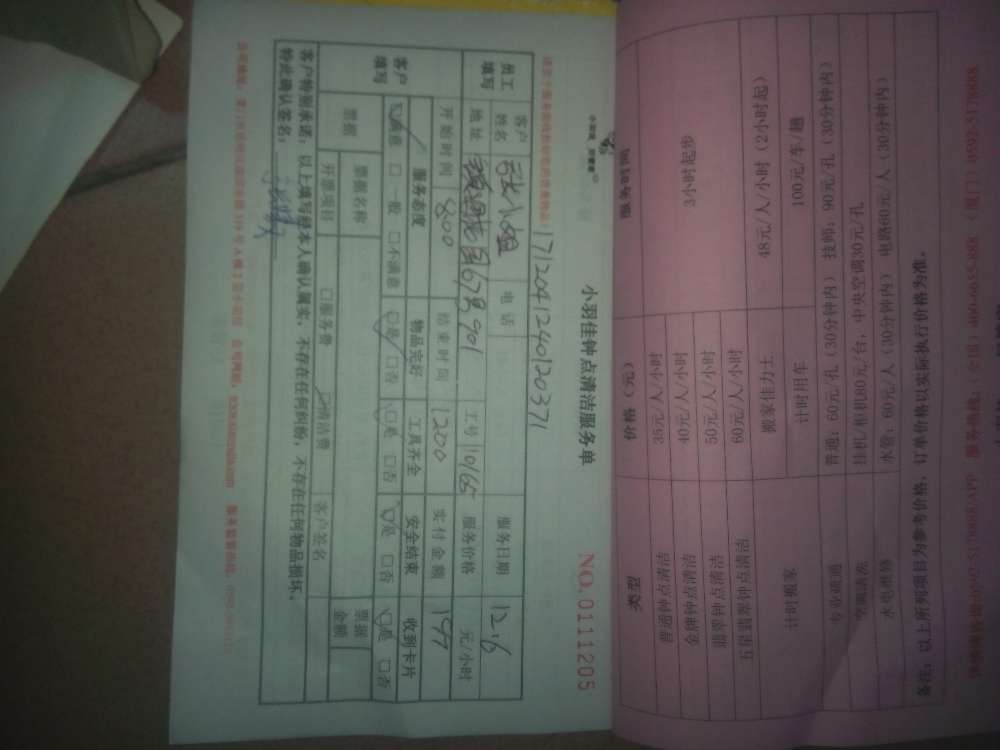 小羽佳钟点清洁服务单
NO.0111205
1712041240120371
员工填写 客户姓名 张小姐 电话 服务日期 12.6
地址 67号901 工号 10165 服务价格 元/小时
开始时间 800 结束时间 1200 实付金额 147
客户填写 服务态度 物品完好 工具齐全 安全结束 收到卡片
☑满意 □一般 □不满意 ☑是 □否 ☑是 □否 ☑是 □否 ☑是 □否
票据 票据名称 客户签名 票据金额
开票项目 □服务费 ☑清洁费
客户特别承诺：以上填写经本人确认属实，不存在任何纠纷，不存在任何物品损坏。
特此确认签名：
类型 价格（元） 服务时间
普通钟点清洁 35元/人/小时 3小时起步
金牌钟点清洁 40元/人/小时
翡翠钟点清洁 50元/人/小时
五星翡翠钟点清洁 60元/人/小时
计时搬家 搬家佳力士 48元/人/小时（2小时起）
计时用车 100元/车/趟
专业疏通 普通：60元/孔（30分钟内） 技师：90元/孔（30分钟内）
空调清洗 挂机/柜机80元/台，中央空调30元/孔
水电维修 水管：60元/人（30分钟内） 电路60元/人（30分钟内）
备注：以上所列项目为参考价格，订单价格以实际执行价格为准。